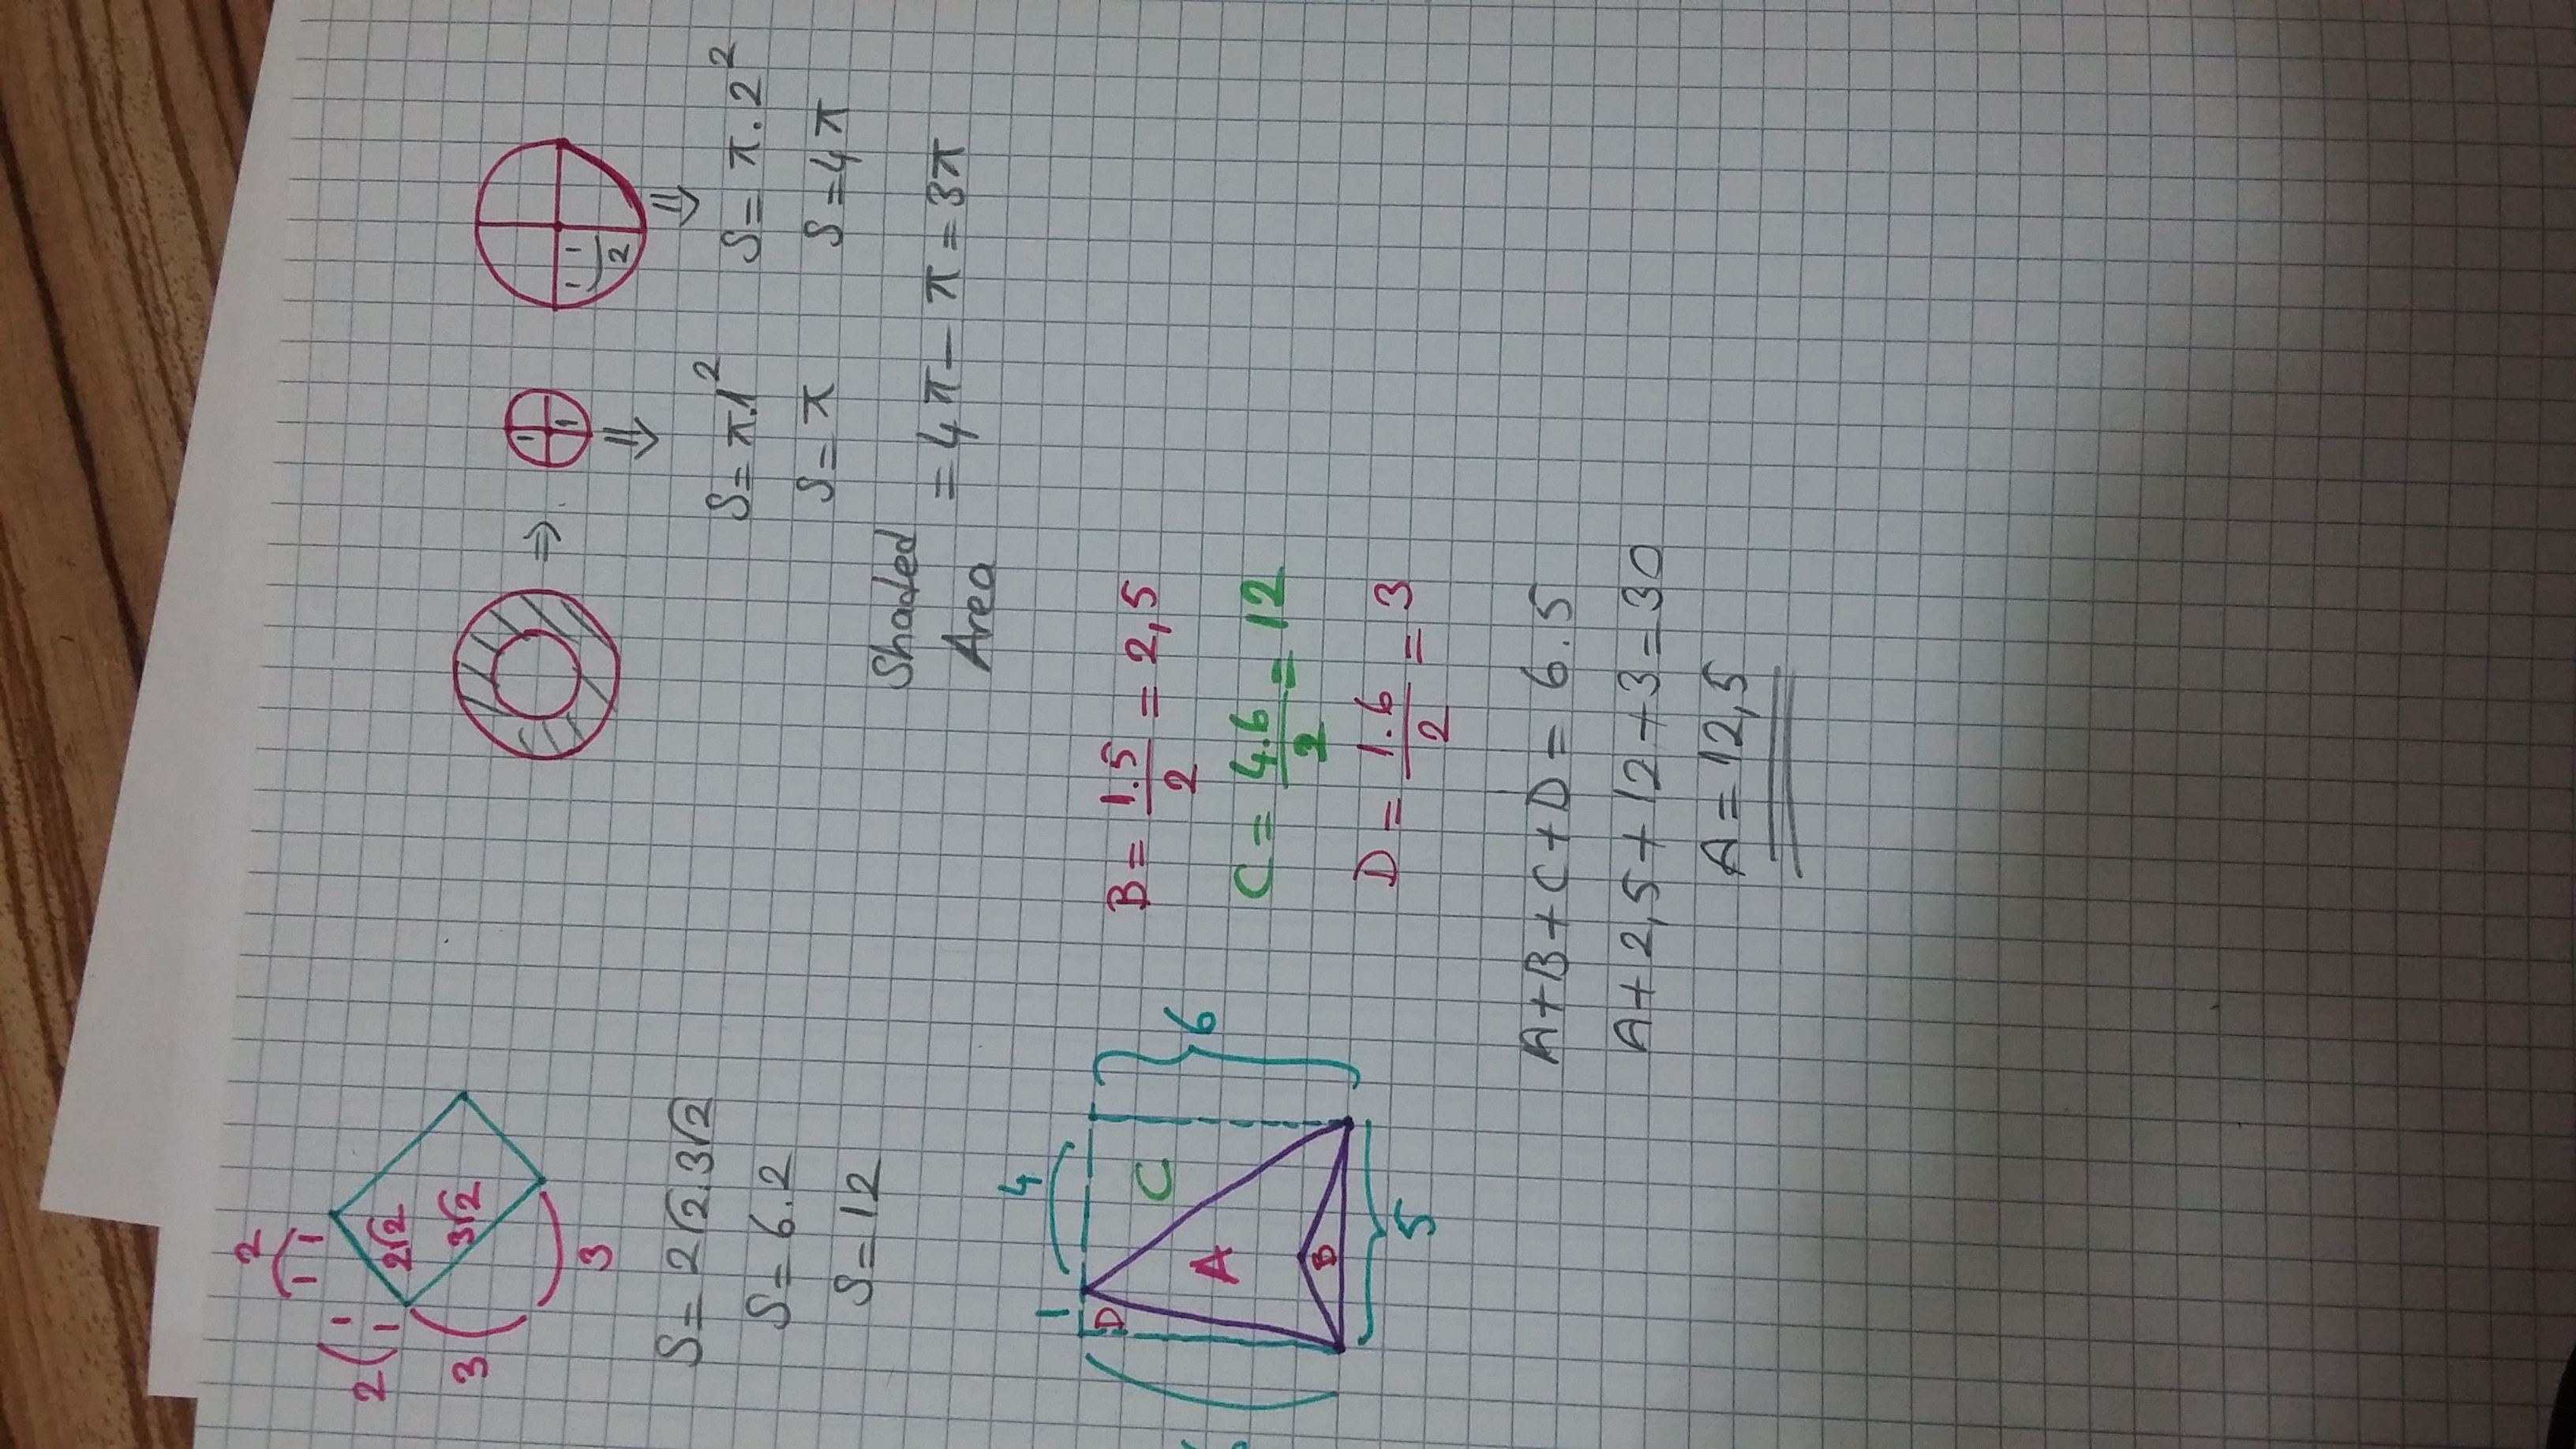 2
1 1
2
1
1
2√2
3√2
3
3
S = 2√2.3√2
S = 6.2
S = 12
⇒
1
1
⇓
S = π.1²
S = π
1 1
2
⇓
S = π.2²
S = 4π
Shaded
Area = 4π - π = 3π
1 4
D C
A
B
6
5
B = 1.5/2 = 2,5
C = 4.6/2 = 12
D = 1.6/2 = 3
A+B+C+D = 6.5
A+2,5+12+3=30
A = 12,5